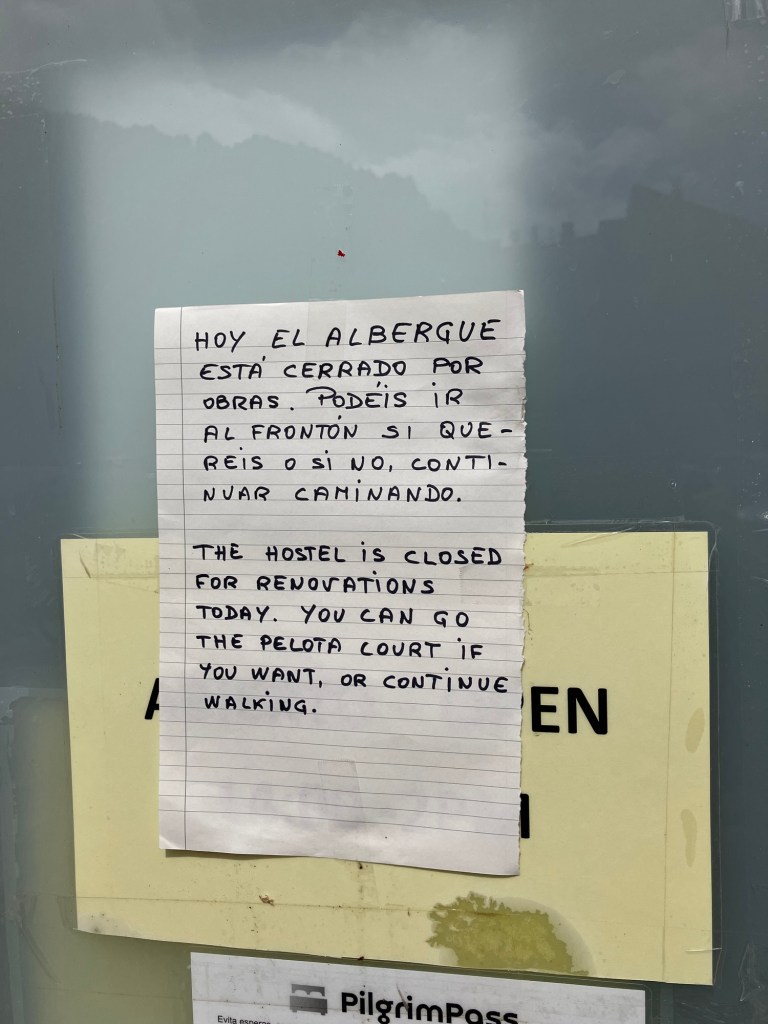 HOY EL ALBERGUE
ESTÁ CERRADO POR
OBRAS. PODÉIS IR
AL FRONTÓN SI QUE-
REIS O SI NO, CONTI-
NUAR CAMINANDO.
THE HOSTEL IS CLOSED
FOR RENOVATIONS
TODAY. YOU CAN GO
THE PELOTA COURT IF
YOU WANT, OR CONTINUE
WALKING.
EN
PilgrimPass
Evita